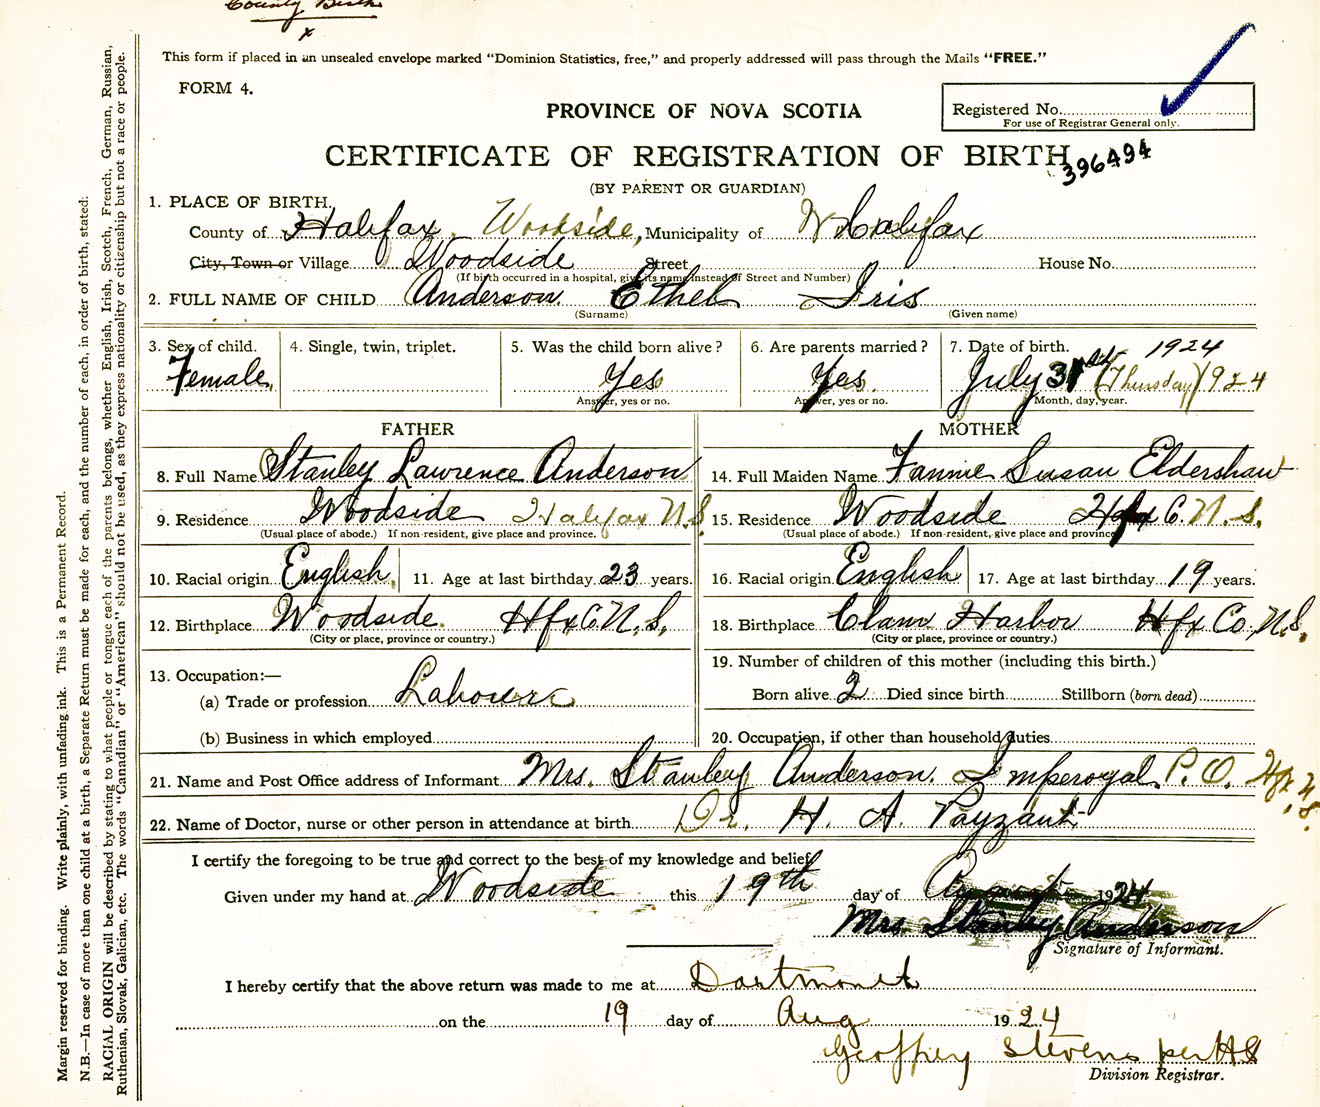 County Birth
x
This form if placed in an unsealed envelope marked "Dominion Statistics, free," and properly addressed will pass through the Mails "FREE."
FORM 4.
PROVINCE OF NOVA SCOTIA
Registered No.
For use of Registrar General only.
CERTIFICATE OF REGISTRATION OF BIRTH
396494
(BY PARENT OR GUARDIAN)
1. PLACE OF BIRTH.
County of Halifax, Woodside, Municipality of Halifax
City, Town or Village Woodside Street House No.
(If birth occurred in a hospital, give its name instead of Street and Number)
2. FULL NAME OF CHILD Anderson Ethel Iris
(Surname) (Given name)
3. Sex of child. 4. Single, twin, triplet. 5. Was the child born alive? 6. Are parents married? 7. Date of birth. 1924
Female. Yes Yes July 31st (Thursday) 1924
Answer, yes or no. Answer, yes or no. Month, day, year.
FATHER MOTHER
8. Full Name Stanley Lawrence Anderson 14. Full Maiden Name Fannie Susan Eldershaw
9. Residence Woodside Halifax N.S. 15. Residence Woodside Hfx C. N.S.
(Usual place of abode.) If non-resident, give place and province. (Usual place of abode.) If non-resident, give place and province.
10. Racial origin English 11. Age at last birthday 23 years. 16. Racial origin English 17. Age at last birthday 19 years.
12. Birthplace Woodside Hfx C. N.S. 18. Birthplace Clam Harbor Hfx Co, N.S.
(City or place, province or country.) (City or place, province or country.)
13. Occupation:— 19. Number of children of this mother (including this birth.)
(a) Trade or profession Labourer Born alive 2 Died since birth Stillborn (born dead)
(b) Business in which employed 20. Occupation, if other than household duties
21. Name and Post Office address of Informant Mrs. Stanley Anderson. Imperoyal P.O. Hfx N.S.
22. Name of Doctor, nurse or other person in attendance at birth Dr. H. A. Payzant
I certify the foregoing to be true and correct to the best of my knowledge and belief
Given under my hand at Woodside this 19th day of August 1924
Mrs. Stanley Anderson
Signature of Informant.
I hereby certify that the above return was made to me at Dartmouth
on the 19 day of Aug 1924
Geoffrey Stevens per HS
Division Registrar.
Margin reserved for binding. Write plainly, with unfading ink. This is a Permanent Record.
N.B.—In case of more than one child at a birth, a Separate Return must be made for each, and the number of each, in order of birth, stated:
RACIAL ORIGIN will be described by stating to what people or tongue each of the parents belongs, whether English, Irish, Scotch, French, German, Russian,
Ruthenian, Slovak, Galician, etc. The words "Canadian" or "American" should not be used, as they express nationality or citizenship but not a race or people.